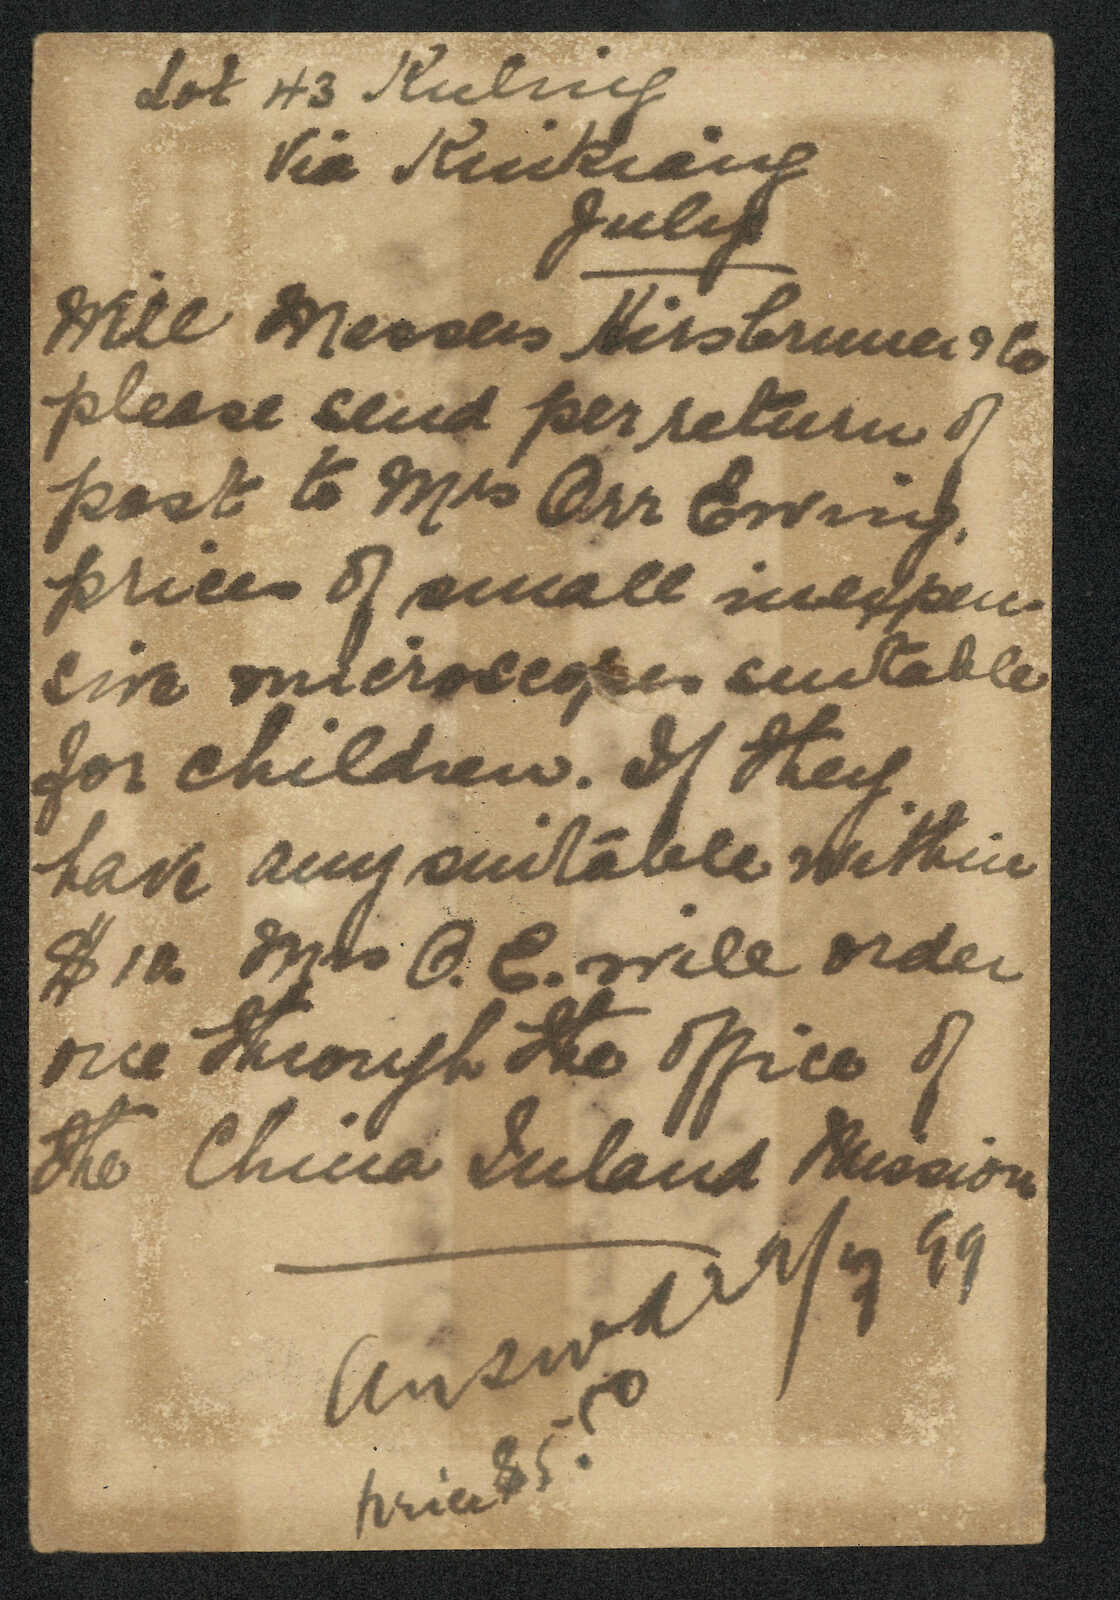 Lot 43 Kuling
Via Kiukiang
July
Will Messers Hirsbrunner & Co
please send per return of
post to Mrs Orr Ewing,
prices of small inexpen-
sive microscopes suitable
for children. If they
have any suitable within
$10. Mrs O. E. will order
one through the office of
the China Inland Mission
Answd 22/7 99
price $5.50